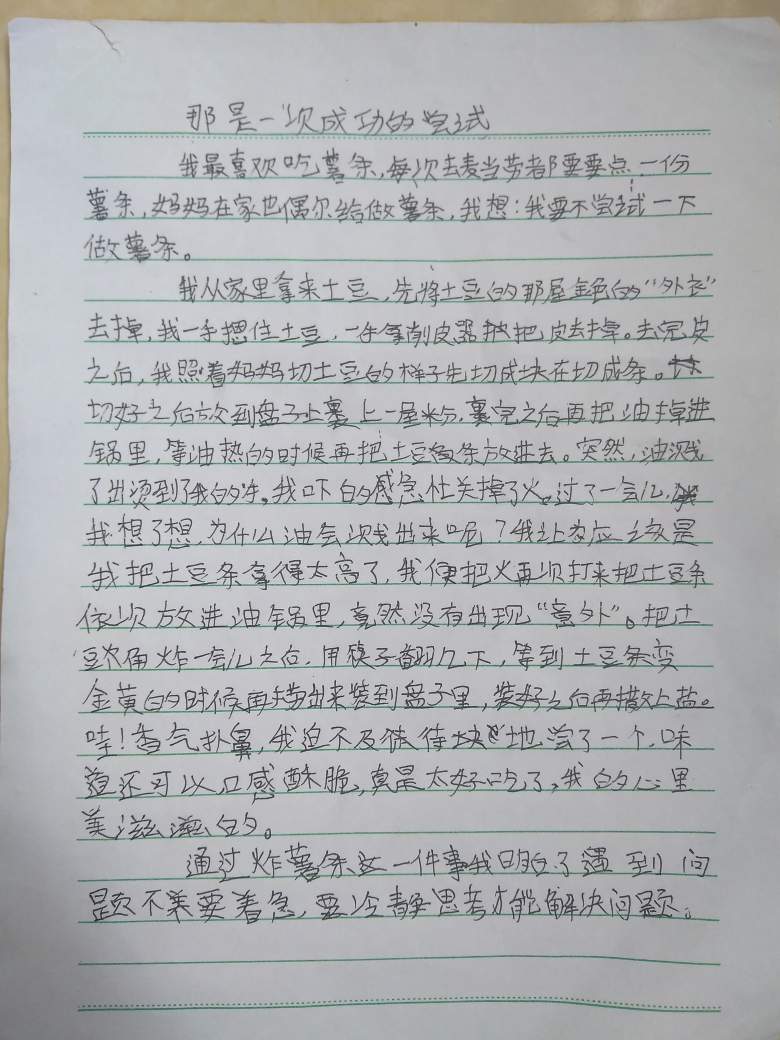 那是一次成功的尝试
我最喜欢吃薯条,每次去麦当劳都要要点一份
薯条,妈妈在家也偶尔给做薯条,我想:我要不尝试一下
做薯条。
我从家里拿来土豆,先将土豆的那层金色的“外衣”
去掉,我一手摁住土豆,一手拿削皮器把皮去掉。去完皮
之后,我照着妈妈切土豆的样子先切成块在切成条。
切好之后放到盘子上裹上一层粉,裹完之后再把油掉进
锅里,等油热的时候再把土豆条放进去。突然,油溅
了出烫到了我的手。我吓的感急忙关掉了火。过了一会儿,
我想了想,为什么油会溅出来呢?我让应该是
我把土豆条拿得太高了,我便把火再次打来把土豆条
依次放进油锅里,竟然没有出现“意外”。把土
豆炸一会儿之后,用筷子翻几下,等到土豆条变
金黄的时候再捞出来装到盘子里,装好之后再撒上盐。
哇!香气扑鼻,我迫不及待地尝了一个,味
道还可以口感酥脆,真是太好吃了,我的心里
美滋滋的。
通过炸薯条这一件事我明白了遇到问
题不要着急,要冷静思考才能解决问题。